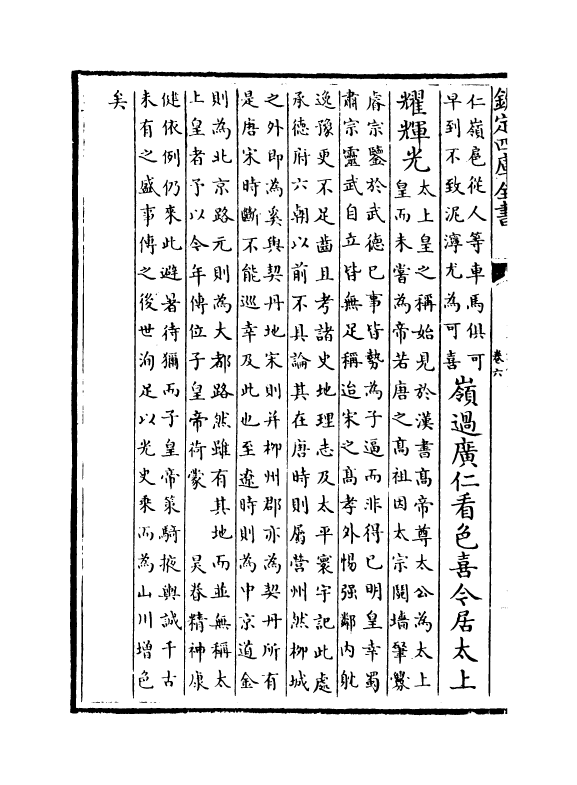 欽定四庫全書
卷六
仁嶺扈從人等車馬俱可
早到不致泥濘尤為可喜
嶺過廣仁看色喜今居太上
耀輝光
太上皇之稱始見於漢書髙帝尊太公為太上
皇而未嘗為帝若唐之髙祖因太宗鬩墻肇釁
睿宗鑒於武徳已事皆勢為子逼而非得已明皇幸蜀
肅宗靈武自立皆無足稱迨宋之髙孝外惕强鄰内躭
逸豫更不足齒且考諸史地理志及太平寰宇記此處
承徳府六朝以前不具論其在唐時則屬營州然柳城
之外即為奚與契丹地宋則并柳州郡亦為契丹所有
是唐宋時斷不能巡幸及此也至遼時則為中京道金
則為北京路元則為大都路然雖有其地而並無稱太
上皇者予以今年傳位子皇帝荷蒙　昊眷精神康
健依例仍來此避暑待獮而子皇帝䇿騎掖輿誠千古
未有之盛事傳之後世洵足以光史乗而為山川增色
矣